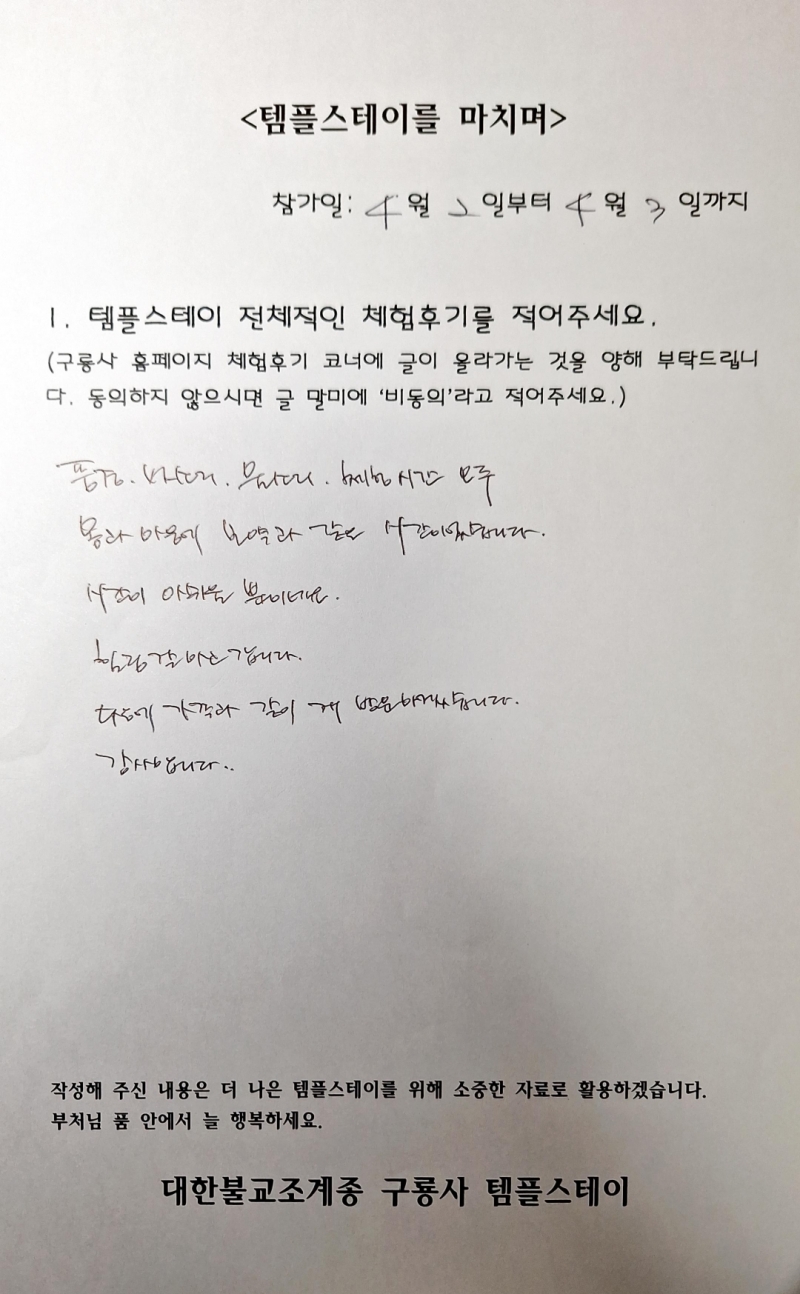 <템플스테이를 마치며>
참가일: 4월 2일부터 4월 3일까지
1. 템플스테이 전체적인 체험후기를 적어주세요.
(구룡사 홈페이지 체험후기 코너에 글이 올라가는 것을 양해 부탁드립니
다. 동의하지 않으시면 글 말미에 '비동의'라고 적어주세요.)
풍경. 바람소리. 물소리. 체험시간 모두
몸과 마음에 보약과 같은 시간이었습니다.
시간이 아쉬울 뿐이네요.
힐링 잘하고 갑니다.
다음에 가족과 같이 재 방문하겠습니다.
감사합니다..
작성해 주신 내용은 더 나은 템플스테이를 위해 소중한 자료로 활용하겠습니다.
부처님 품 안에서 늘 행복하세요.
대한불교조계종 구룡사 템플스테이